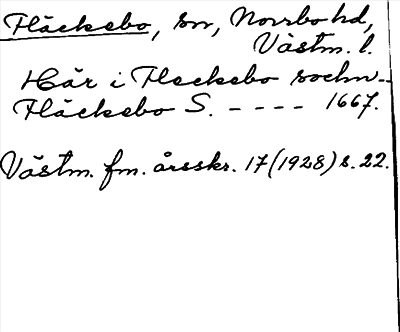 Fläckebo, sn, Norrbo hd,
Västm. l.
Här i Fleckebo sochn -
Fläckebo S. - - - - 1667.
Västm. fm. årsskr. 17 (1928) s. 22.